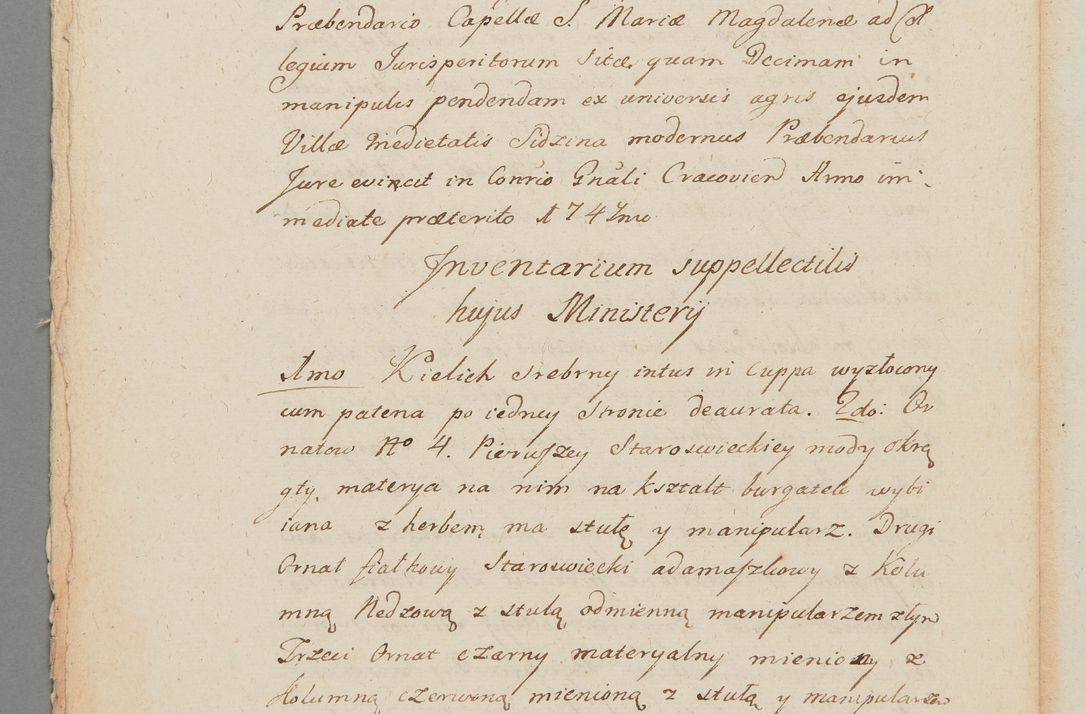 Præbendario Capellæ S. Mariæ Magdalenæ ad Col
legium Jurisperitorum Sitæ, quam Decimam in
manipulis pendendam ex universis agris ejusdem
Villæ Medietatis Sidzina modernus Præbendarius
Jure evincit in Con̄rio Gn̄ali Cracovien Anno im-
mediate præterito 1747mo
Inventarium suppellectilis
hujus Ministerij
1mo Kielich srebrny intus in Cuppa wyzłocony
cum patena po iedney stronie deaurata. 2do: Or
natow No 4. Pierwszey Staroswieckiey mody okrą
gły, materya na nim na kształt burgateli wybi
iana z herbem, ma stułę y manipularz. Drugi
Ornat fiałkowy Staroswiecki adamaszkowy z Kolu
mną Nedzową z stułą odmienną manipularzem złym
Trzeci Ornat czarny materyalny mieniony z
Kolumną czerwoną mienioną z stułą y manipularzem